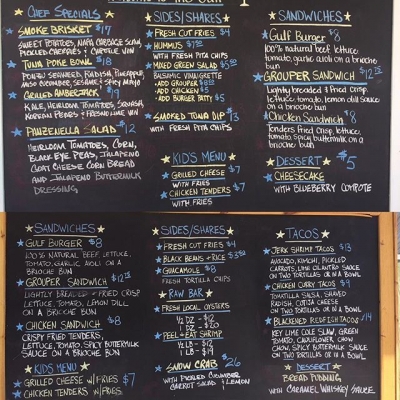 CHEF SPECIALS
SMOKE BRISKET $17
SWEET POTATOES, NAPA CABBAGE SLAW,
PICKLED CHERRIES & CURTLE WINE
TUNA POKE BOWL $18
POILON SEAWEED, RADISH, PINEAPPLE,
MISO CUCUMBER, SESAME, & SPICY MAYO
GRILLED AMBERJACK $19
KALE, HEIRLOOM TOMATOES, SQUASH,
KOREAN PEARS & FRESNO LIME VIN
PANZENELLA SALAD $12
HEIRLOOM TOMATOES, CORN,
BLACK EYE PEAS, JALAPENO
GOAT CHEESE CORN BREAD
AND JALAPENO BUTTERMILK
DRESSING
SIDES/SHARES
FRESH CUT FRIES $4
HUMMUS $7
WITH FRESH PITA CHIPS
MIXED GREEN SALAD
BALSAMIC VINAIGRETTE
- ADD GROUPER
- ADD CHICKEN $5
- ADD BURGER PATTY $5
SMOKED TUNA DIP $13
WITH FRESH PITA CHIPS
KIDS MENU
GRILLED CHEESE $7
WITH FRIES
CHICKEN TENDERS $7
WITH FRIES
SANDWICHES
Gulf Burger $8
100% natural beef, lettuce,
tomato, garlic aioli on a brioche
bun
GROUPER SANDWICH $12
Lightly breaded & fried crisp
lettuce, tomato, lemon dill sauce
on a brioche bun
Chicken Sandwich $8
Tenders fried crisp, lettuce,
tomato, spicy buttermilk on a
brioche bun
DESSERT $5
CHEESECAKE
WITH BLUEBERRY COMPOTE
SANDWICHES
GULF BURGER $8
100% NATURAL BEEF, LETTUCE,
TOMATO, GARLIC AIOLI ON A
BRIOCHE BUN
GROUPER SANDWICH $12
LIGHTLY BREADED & FRIED CRISP
LETTUCE, TOMATO, LEMON DILL
ON A BRIOCHE BUN
CHICKEN SANDWICH $8
CRISPY FRIED TENDERS,
LETTUCE, TOMATO, SPICY BUTTERMILK
SAUCE ON A BRIOCHE BUN
KIDS MENU
GRILLED CHEESE W/FRIES $7
CHICKEN TENDERS W/FRIES
SIDES/SHARES
FRESH CUT FRIES $4
BLACK BEANS + RICE $3.50
GUACAMOLE $8
FRESH TORTILLA CHIPS
RAW BAR
FRESH LOCAL OYSTERS
1/2 DZ - $12
1 DZ - $20
PEEL + EAT SHRIMP
1/2 LB - $12
1 LB - $19
SNOW CRAB $26
WITH PICKLED CUCUMBER
CARROT SALAD & LEMON
TACOS
JERK SHRIMP TACOS $13
AVOCADO, KIMCHI, PICKLED
CARROTS, LIME CILANTRO SAUCE
ON TWO TORTILLAS OR IN A BOWL
CHICKEN CURRY TACOS $9
TOMATILLA SALSA, SHAVED
RADISH, COTIJA CHEESE
ON TWO TORTILLAS OR IN A BOWL
BLACKENED REDFISH TACOS $14
KEY LIME COLE SLAW, GREEN
TOMATO, CAULIFLOWER CHOW
CHOW, SPICY BUTTERMILK SAUCE
ON TWO TORTILLAS OR IN A BOWL
DESSERT
BREAD PUDDING
WITH CARAMEL WHISKEY SAUCE